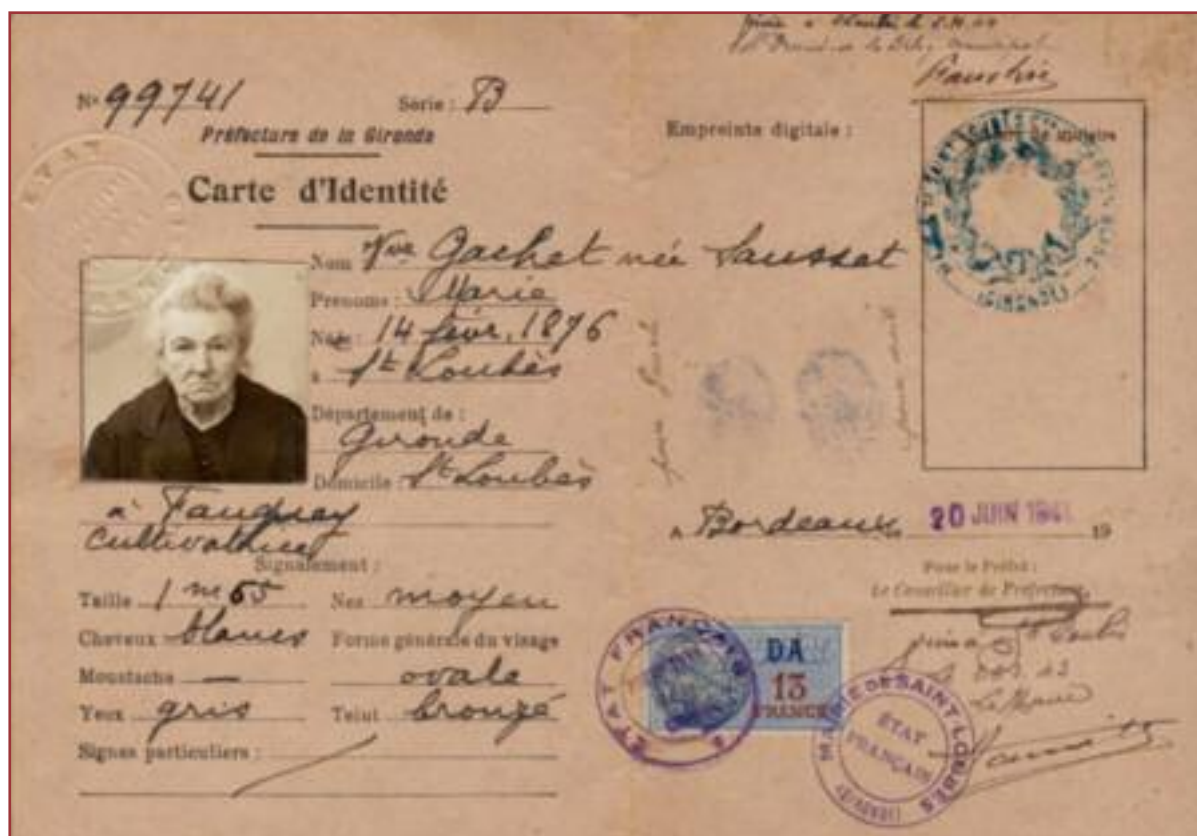 Nº 99741 Série : B
Préfecture de la Gironde
Carte d'Identité
Nom Vve Gachet née Sausset
Prénoms : Marie
Née : 14 févr. 1876
à St Loubès
Département de :
Gironde
Domicile : St Loubès
à
Cultivatrice
Signalement :
Taille 1 m 55 Nez moyen
Cheveux blancs Forme générale du visage
Moustache — ovale
Yeux gris Teint bronzé
Signes particuliers :
Empreinte digitale :
titulaire
(GIRONDE)
A Bordeaux, 20 JUIN 19
Pour le Préfet :
Le Conseiller de Préfecture,
Le Maire
ETAT FRANÇAIS
DA
13
FRANCS
MAIRIE DE SAINT-LOUBÈS
ÉTAT
FRANÇAIS
(GIRONDE)